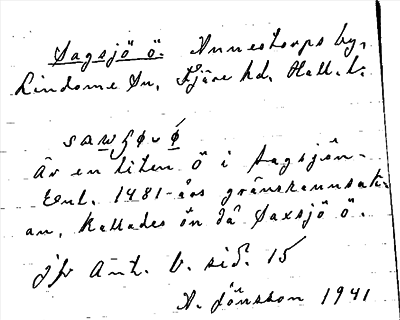 Sagsjö ö. Annestorps by,
Lindome Sn, Fjäre hd. Hall. l.
sawʃøˑǿ
Är en liten ö i Sagsjön.
Enl. 1481-års gränsrannsak-
an, kallades ön då Saxsjö ö.
jfr Ant. V. sid. 15
A. Jönsson 1941